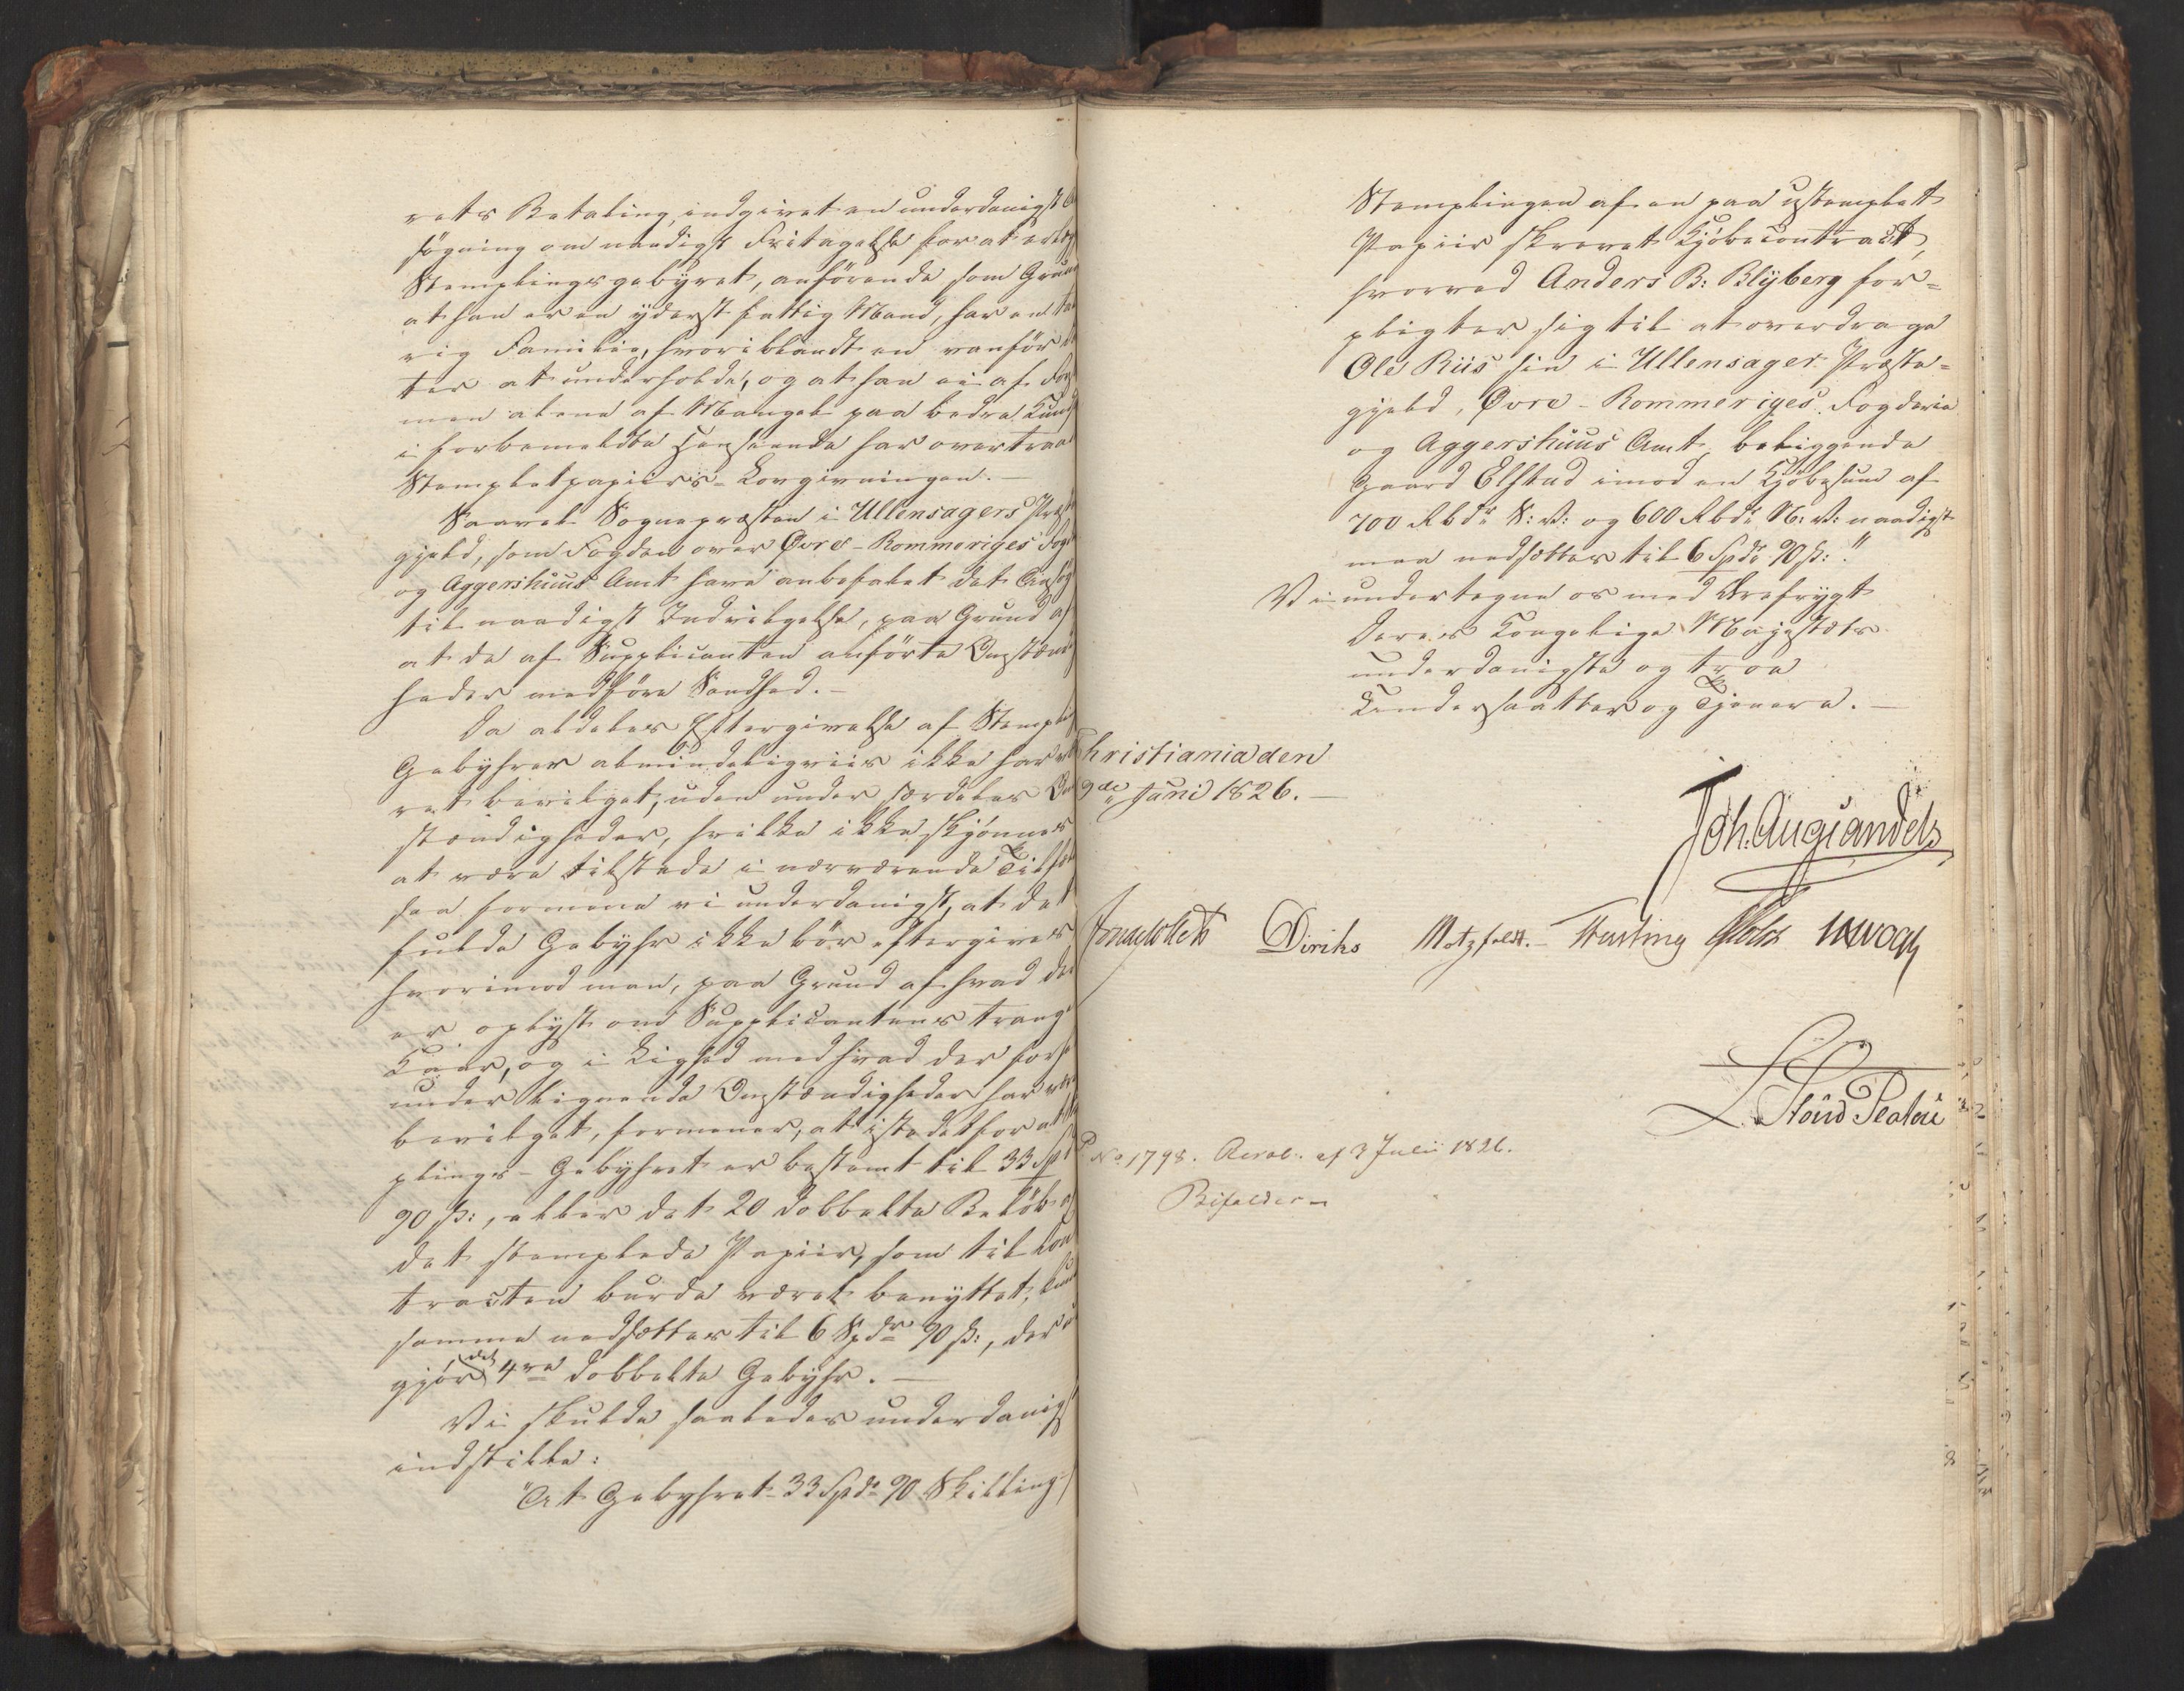 rets Betaling, indgivet en underdanigst
søgning om naadigst Fritagelse for at
Stemplingsgebyret, anførende som Grund
at han er en yderst fattig Mand, har en
rig Familie, hvoriblandt en vanför
ter at underholde, og at han ei af
men alene af Mangel paa bedre Kund
i forbemeldte Henseende har overtraad
Stempletpapiirs-Lovgivningen. —
Saavel Sognepræsten i Ullensagers Præste
gjeld, som Fogden over Øvre-Rommeriges Fog
og Aggershuus Amt have anbefalet det Ansøg
til naadigst Indvilgelse, paa Grund af
at de af Supplicanten anförte Omstændig
heder medføre Sandhed. —
Da aldeles Eftergivelse af Stemplin
Gebyhrer almindeligviis ikke har
ret bevilget, uden under særdeles Om
stændigheder, hvilke ikke skjønnes
at være tilstede i nærværende Tilfæl
saa formene vi underdanigst, at det
fulde Gebyhr ikke bör eftergives
hvorimod man, paa Grund af hvad der
er oplyst om Supplicantens trange
Kaar, og i Lighed med hvad der før
under lignende Omstændigheder har
bevilget, formener, at istedetfor at
plings-Gebyhret er bestemt til 33 Spd
90 ß:, eller det 20 dobbelte Beløb af
det stemplede Papiir, som til Con
tracten burde været benyttet, kun
samme nedsættes til 6 Spdr 90 ß:, der
gjør det 4re dobbelte Gebyhr. —
Vi skulde saaledes underdanigst
indstille:
"At Gebyhret 33 Spdr 90 Skilling
Stemplingen af en paa ustemplet
Papiir skrevet Kjöbecontract,
hvorved Anders B: Blyberg for=
pligter sig til at overdrage
Ole Riis sin i Ullensager Præste=
gjeld, Øvre-Rommeriges Fogderie
og Aggershuus Amt, beliggende
Gaard Elstad imod en Kjöbesum af
700 Rbdr S: V: og 600 Rbdr N: V: naadigst
maa nedsættes til 6 Spdr 90 ß:."
Vi undertegne os med Ærefrygt
Deres Kongelige Majestæts
underdanigste og troe
Undersaatter og Tjenere. —
Christiania den
9de Juni 1826. —
Joh. Aug. Sandels
Diriks Motzfeldt.
L. Stoud Platou
No 1798. Resol. af 3 Julii 1826.
Bifaldes